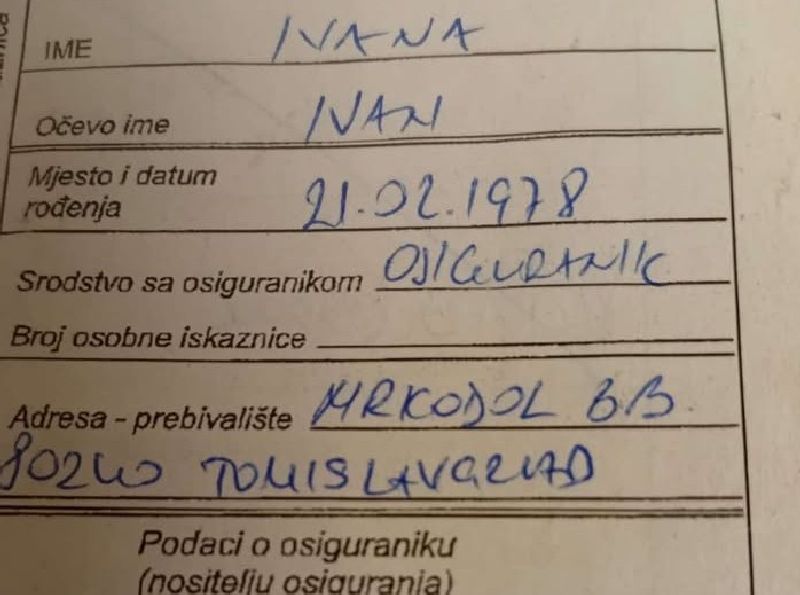 IME IVANA
Očevo ime IVAN
Mjesto i datum
rođenja 21.02.1978
Srodstvo sa osiguranikom OSIGURANIK
Broj osobne iskaznice
Adresa - prebivalište MRKODOL BB
80240 TOMISLAVGRAD
Podaci o osiguraniku
(nositelju osiguranja)